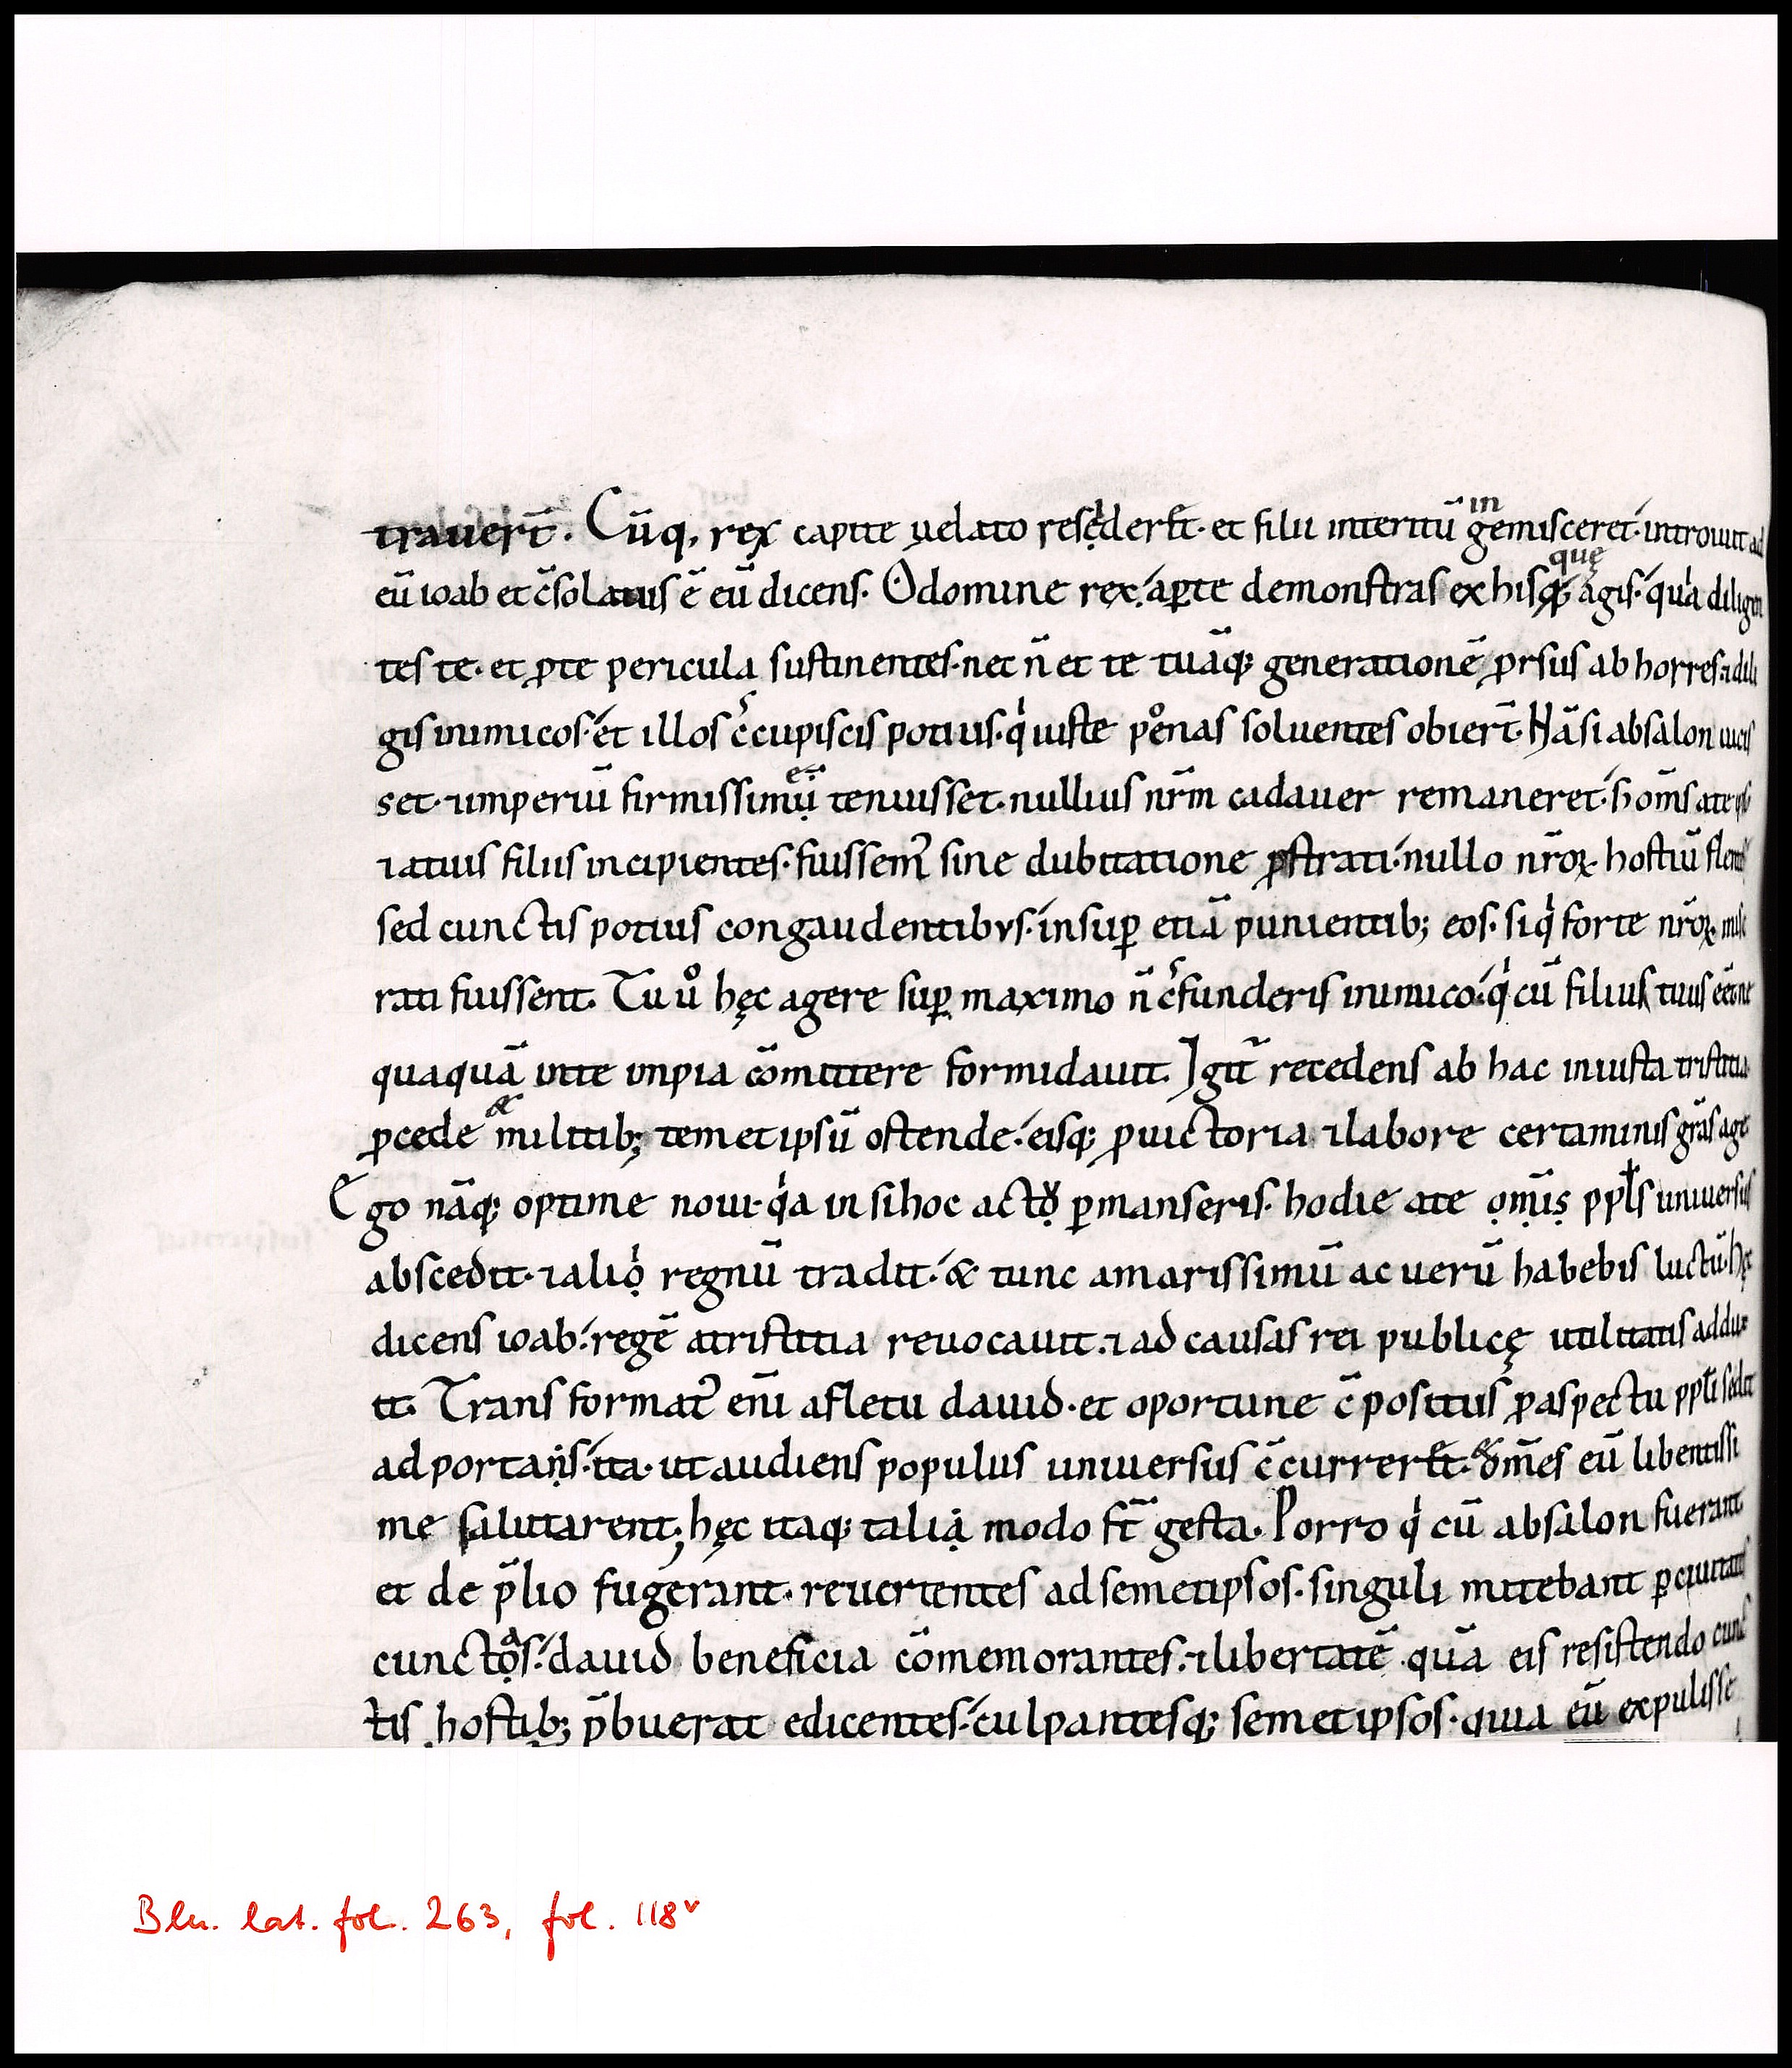 trauert̄. Cūq, rex capite uelato resederēt· et filii interitū ingemisceret· introiuit ad
eū ioab et c̄solatus ē eū dicens. O domine rex. aꝑte demonstras ex his quę agis· quia diligen
tes te· et ꝓ te pericula sustinentes· nec n̄ et te tuāq; generationē ꝓrsus ab horres· ⁊ dili
gis inimicos· et illos c̄cupiscis potius· qͥ iuste poenas soluentes obiert̄. Nā si absalon uicis
set· ⁊ imperiū firmissimū tenuisset· nullius nr̄m cadauer remaneret· s om̄s a te
⁊ a tuis filiis incipientes· fuissemꝰ sine dubitatione ꝓstrati· nullo nr̄oꝝ hostiū
sed cunctis potius congaudentibus· insuꝑ etiā punientib; eos· si qͥ forte nr̄oꝝ mise
rati fuissent. Tu uͦ hęc agere suꝑ maximo n̄ c̄funderis inimico· qͥ cū filius tuus
quaquā in te inpia cōmittere formidauit. Igit̄ recedens ab hac iniusta tristitia
ꝓcede & militib; temet ipsū ostende· eisq; ꝓ uictoria ⁊ labore certaminis grās age
Ego nāq; optime noui· qͥa in si hoc acto ꝑmanseris· hodie a te omīs ppl̄s uniuersus
abscedit· ⁊ alio regnū tradit· & tunc amarissimū ac uerū habebis luctū. hęc
dicens ioab· regē a tristitia reuocauit· ⁊ ad causas rei publicę utilitatis addux
it. Transformatꝰ eni a fletu dauid· et oportune c̄positus ꝓ aspectu ppl̄i sedit
ad portas· ita· ut audiens populus uniuersus c̄currerēt· & om̄es eū libentissi
me salutarent; hęc itaq; talia modo st̄ gesta. Porro qͥ cū absalon fuerant
et de p̄lio fugerant· reuertentes ad semetipsos· singuli mittebant ꝑ ciuitates
cunctas· dauid beneficia cōmemorantes· ⁊ libertatē quā eis resistendo cunc
tis hostib; p̄buerat edicentes· culpantesq; semet ipsos· quia eū expulisse
Bln. lat. fol. 263, fol. 118ᵛ